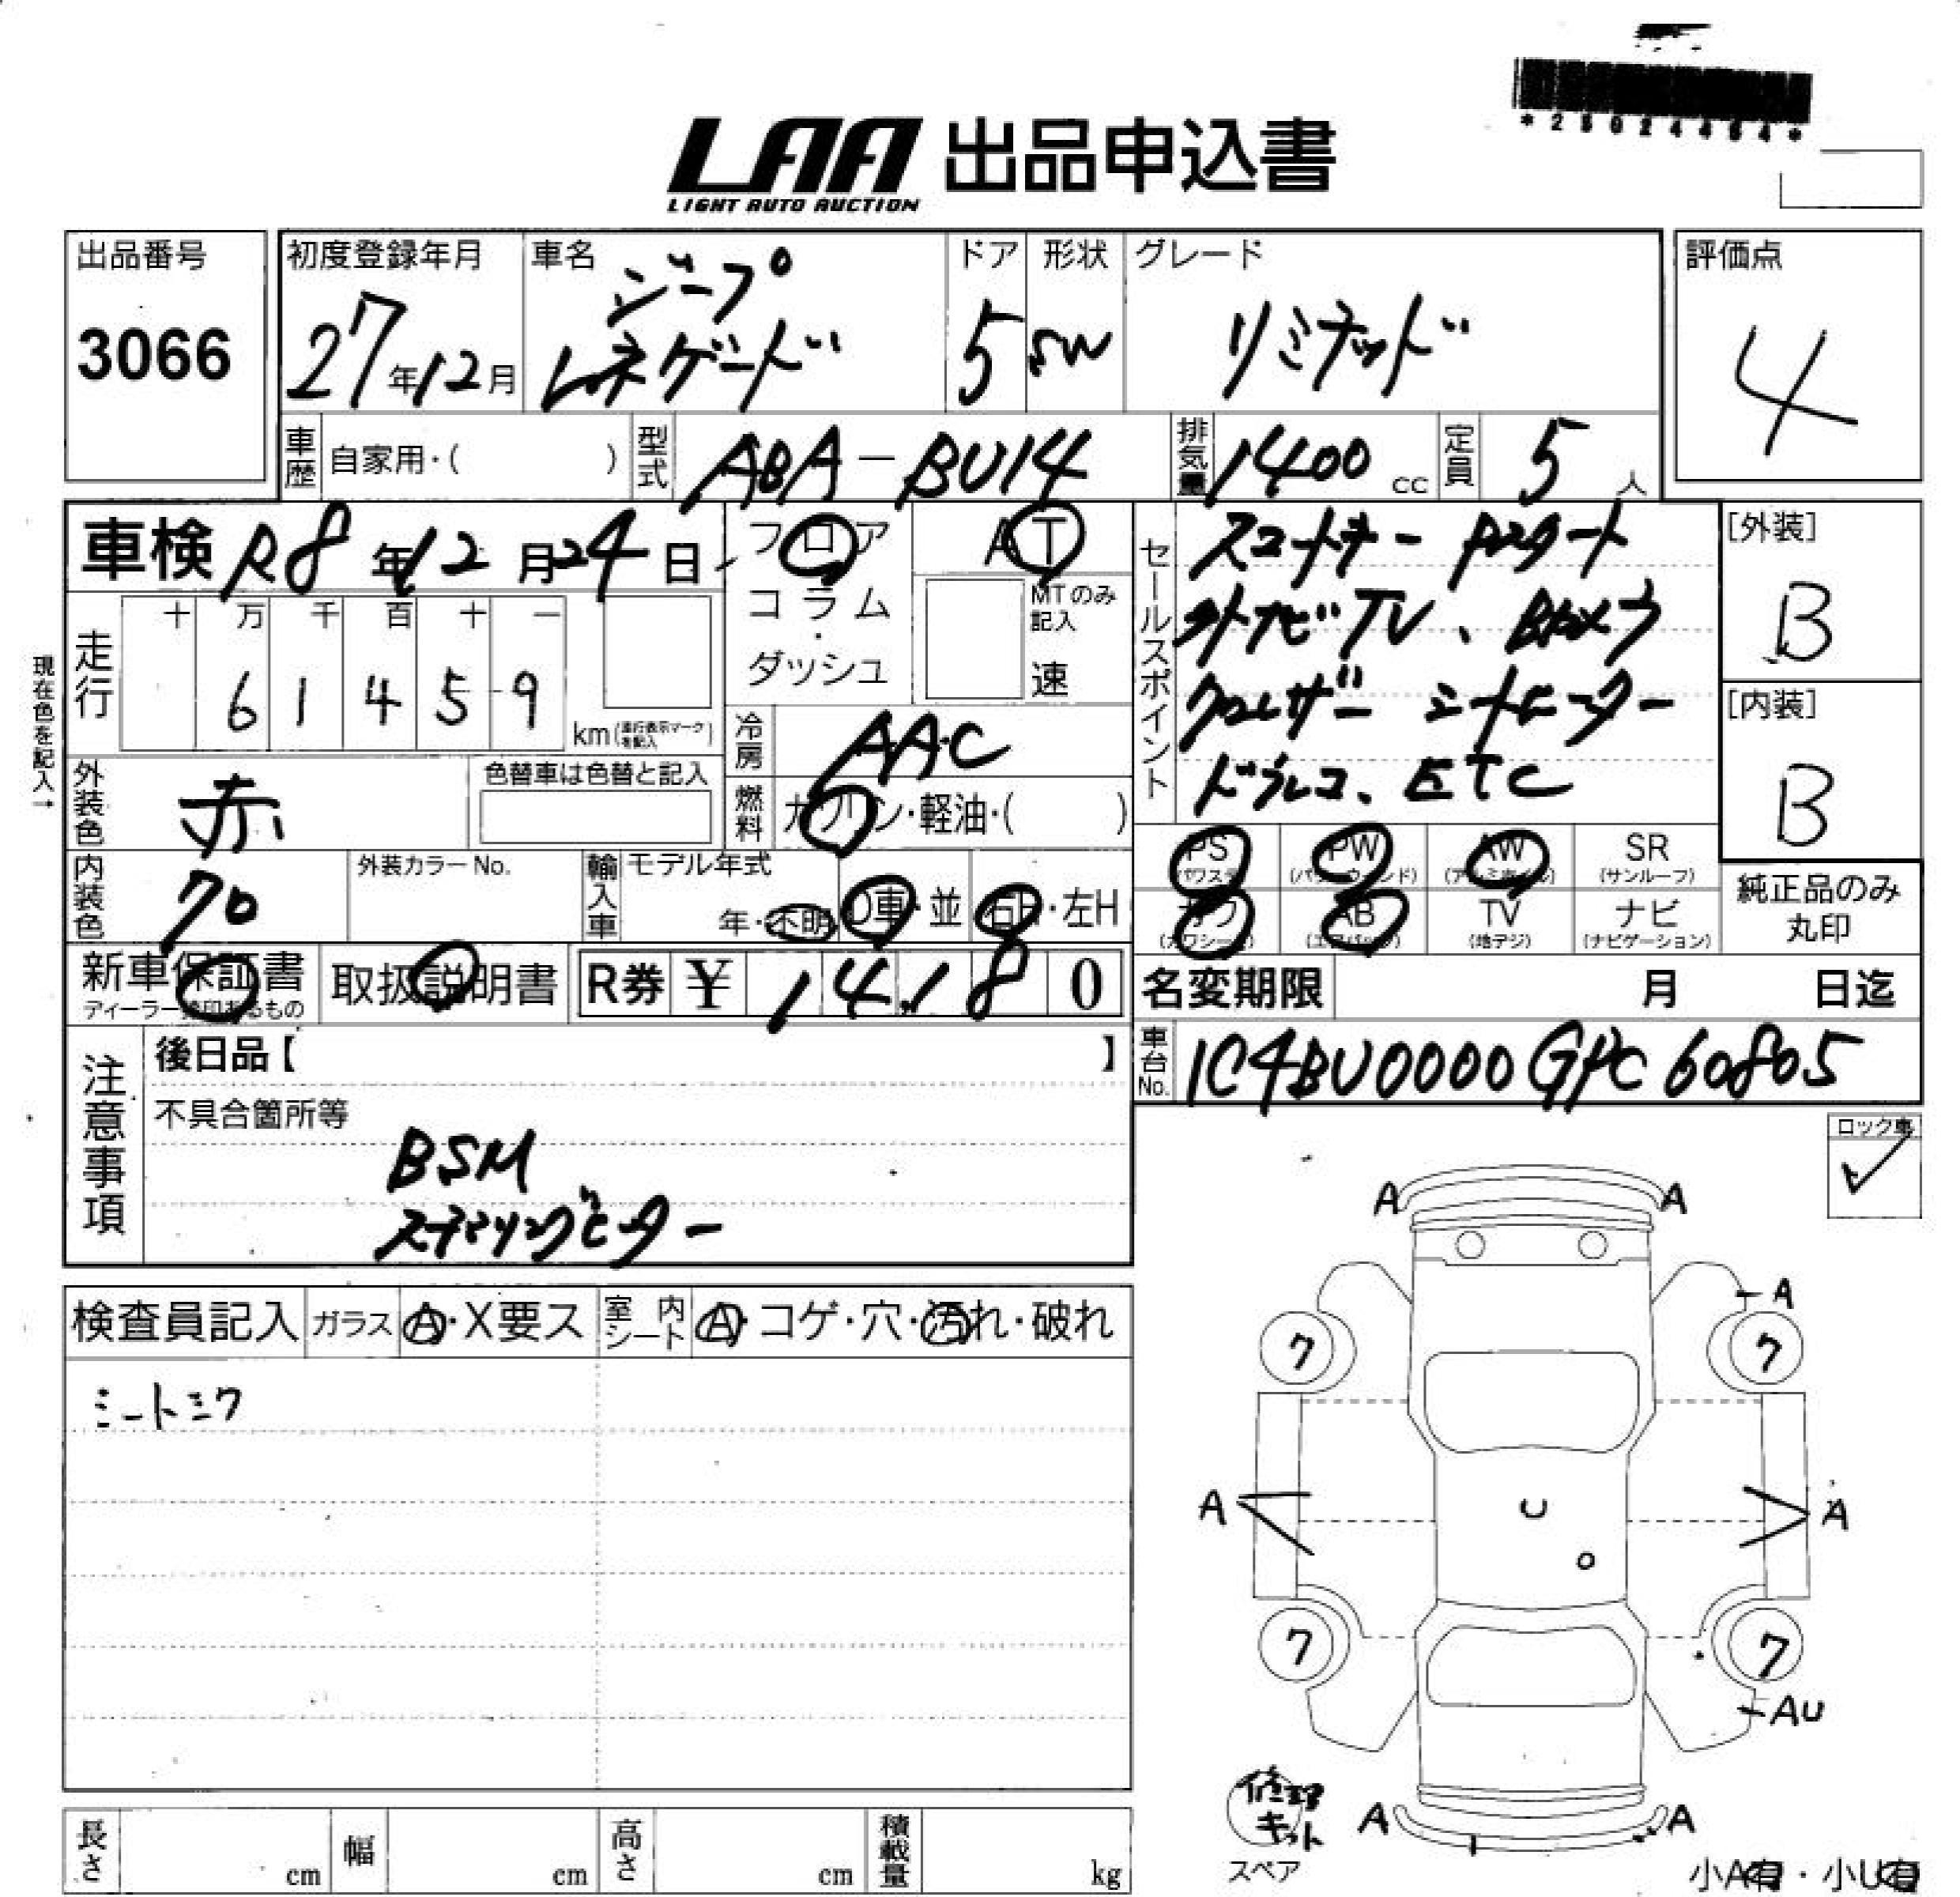 *25024464*
LAA 出品申込書
LIGHT AUTO AUCTION
出品番号
3066
初度登録年月
27年12月
車名
ジープ
レネゲード
ドア
5
形状
SW
グレード
リミテッド
評価点
4
車歴 自家用・( )
型式 ABA-BU14
排気量 1400 cc
定員 5人
車検 R8年12月24日
フロア
コラム
・
ダッシュ
AT
MTのみ記入
速
セールスポイント
スマートキー Pスタート
外ナビTV、Bカメラ
クルーザー シートヒーター
ドラレコ、ETC
[外装]
B
[内装]
B
現在色を記入→
走行
十 万 千 百 十 一
6 1 4 5 9
km(走行表示マークを記入)
冷房 AAC
燃料 ガソリン・軽油・( )
外装色 赤
色替車は色替と記入
内装色 クロ
外装カラーNo.
輸入車
モデル年式
年・不明
D車・並
右H・左H
PS (パワステ)
PW (パワーウィンド)
AW (アルミホイル)
SR (サンルーフ)
カワ (カワシート)
AB (エアバック)
TV (地デジ)
ナビ (ナビゲーション)
純正品のみ
丸印
新車保証書
ディーラー捺印あるもの
取扱説明書
R券 ¥ 14,180
名変期限 月 日迄
車台No. 1C4BU0000GPC60805
注意事項
後日品【 】
不具合箇所等
BSM
ステアリングヒーター
ロック車
✓
検査員記入
ガラス A・X要ス
室内シート A・コゲ・穴・汚れ・破れ
シートミワ
A A
A
7 7
A A
U
7 7
AU
A A
修理
キット
スペア
小A有・小U有
長さ cm
幅 cm
高さ cm
積載量 kg